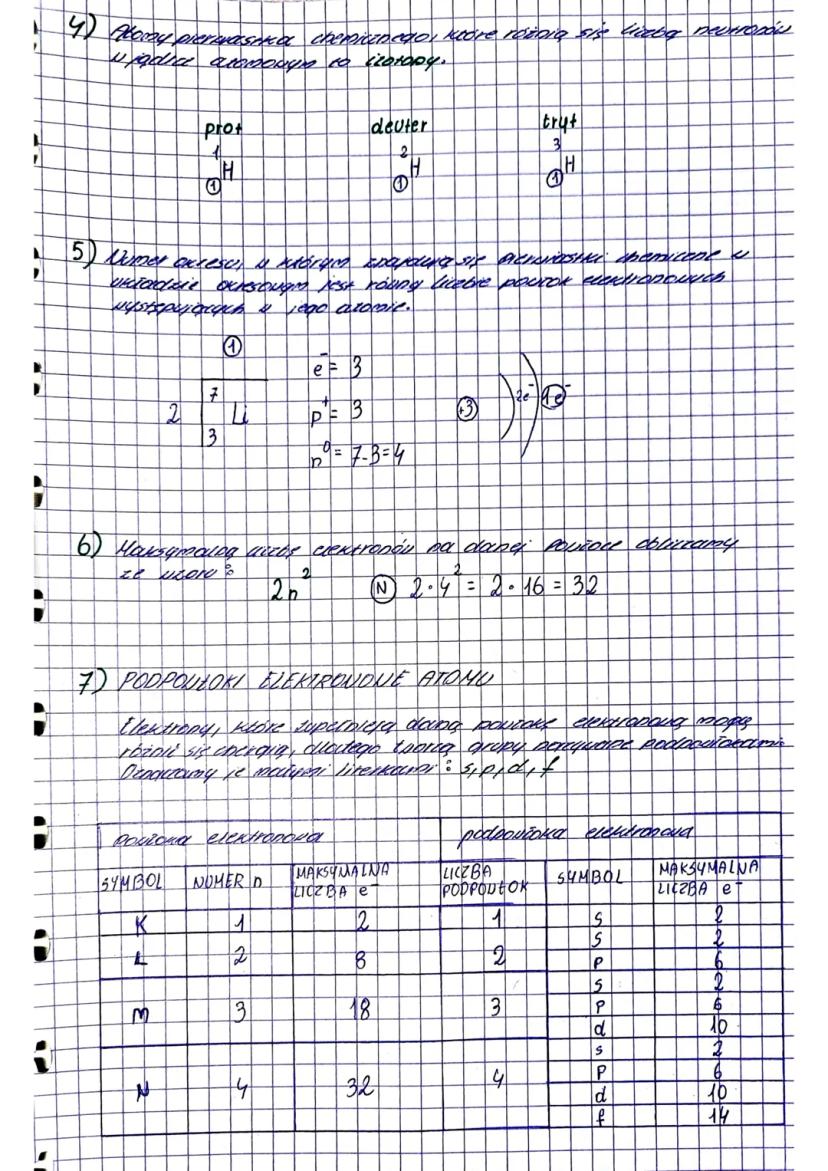 4) Atomy pierwiastka chemicznego, które różnią się liczbą neutronów
w jądrze atomowym to izotopy.
prot deuter tryt
1 2 3
H H H
1 1 1
5) Numer okresu, w którym znajdują się pierwiastki chemiczne w
układzie okresowym jest równy liczbie powłok elektronowych
występujących w jego atomie.
1
e⁻ = 3
7
2 Li p⁺ = 3 +3 2e⁻ 1e⁻
3
n⁰ = 7-3=4
6) Maksymalną liczbę elektronów na danej powłoce obliczamy
ze wzoru:
2n² N 2·4² = 2·16 = 32
7) PODPOWŁOKI ELEKTRONOWE ATOMU
Elektrony, które zapełnieją daną powłokę elektronową mogą
różnić się energią, dlatego tworzą grupy nazywane podpowłokami.
Oznaczamy je małymi literkami: s, p, d, f
powłoka elektronowa podpowłoka elektronowa
SYMBOL NUMER n MAKSYMALNA LICZBA e⁻ LICZBA PODPOWŁOK SYMBOL MAKSYMALNA LICZBA e⁻
K 1 2 1 s 2
L 2 8 2 s 2
p 6
M 3 18 3 s 2
p 6
d 10
N 4 32 4 s 2
p 6
d 10
f 14